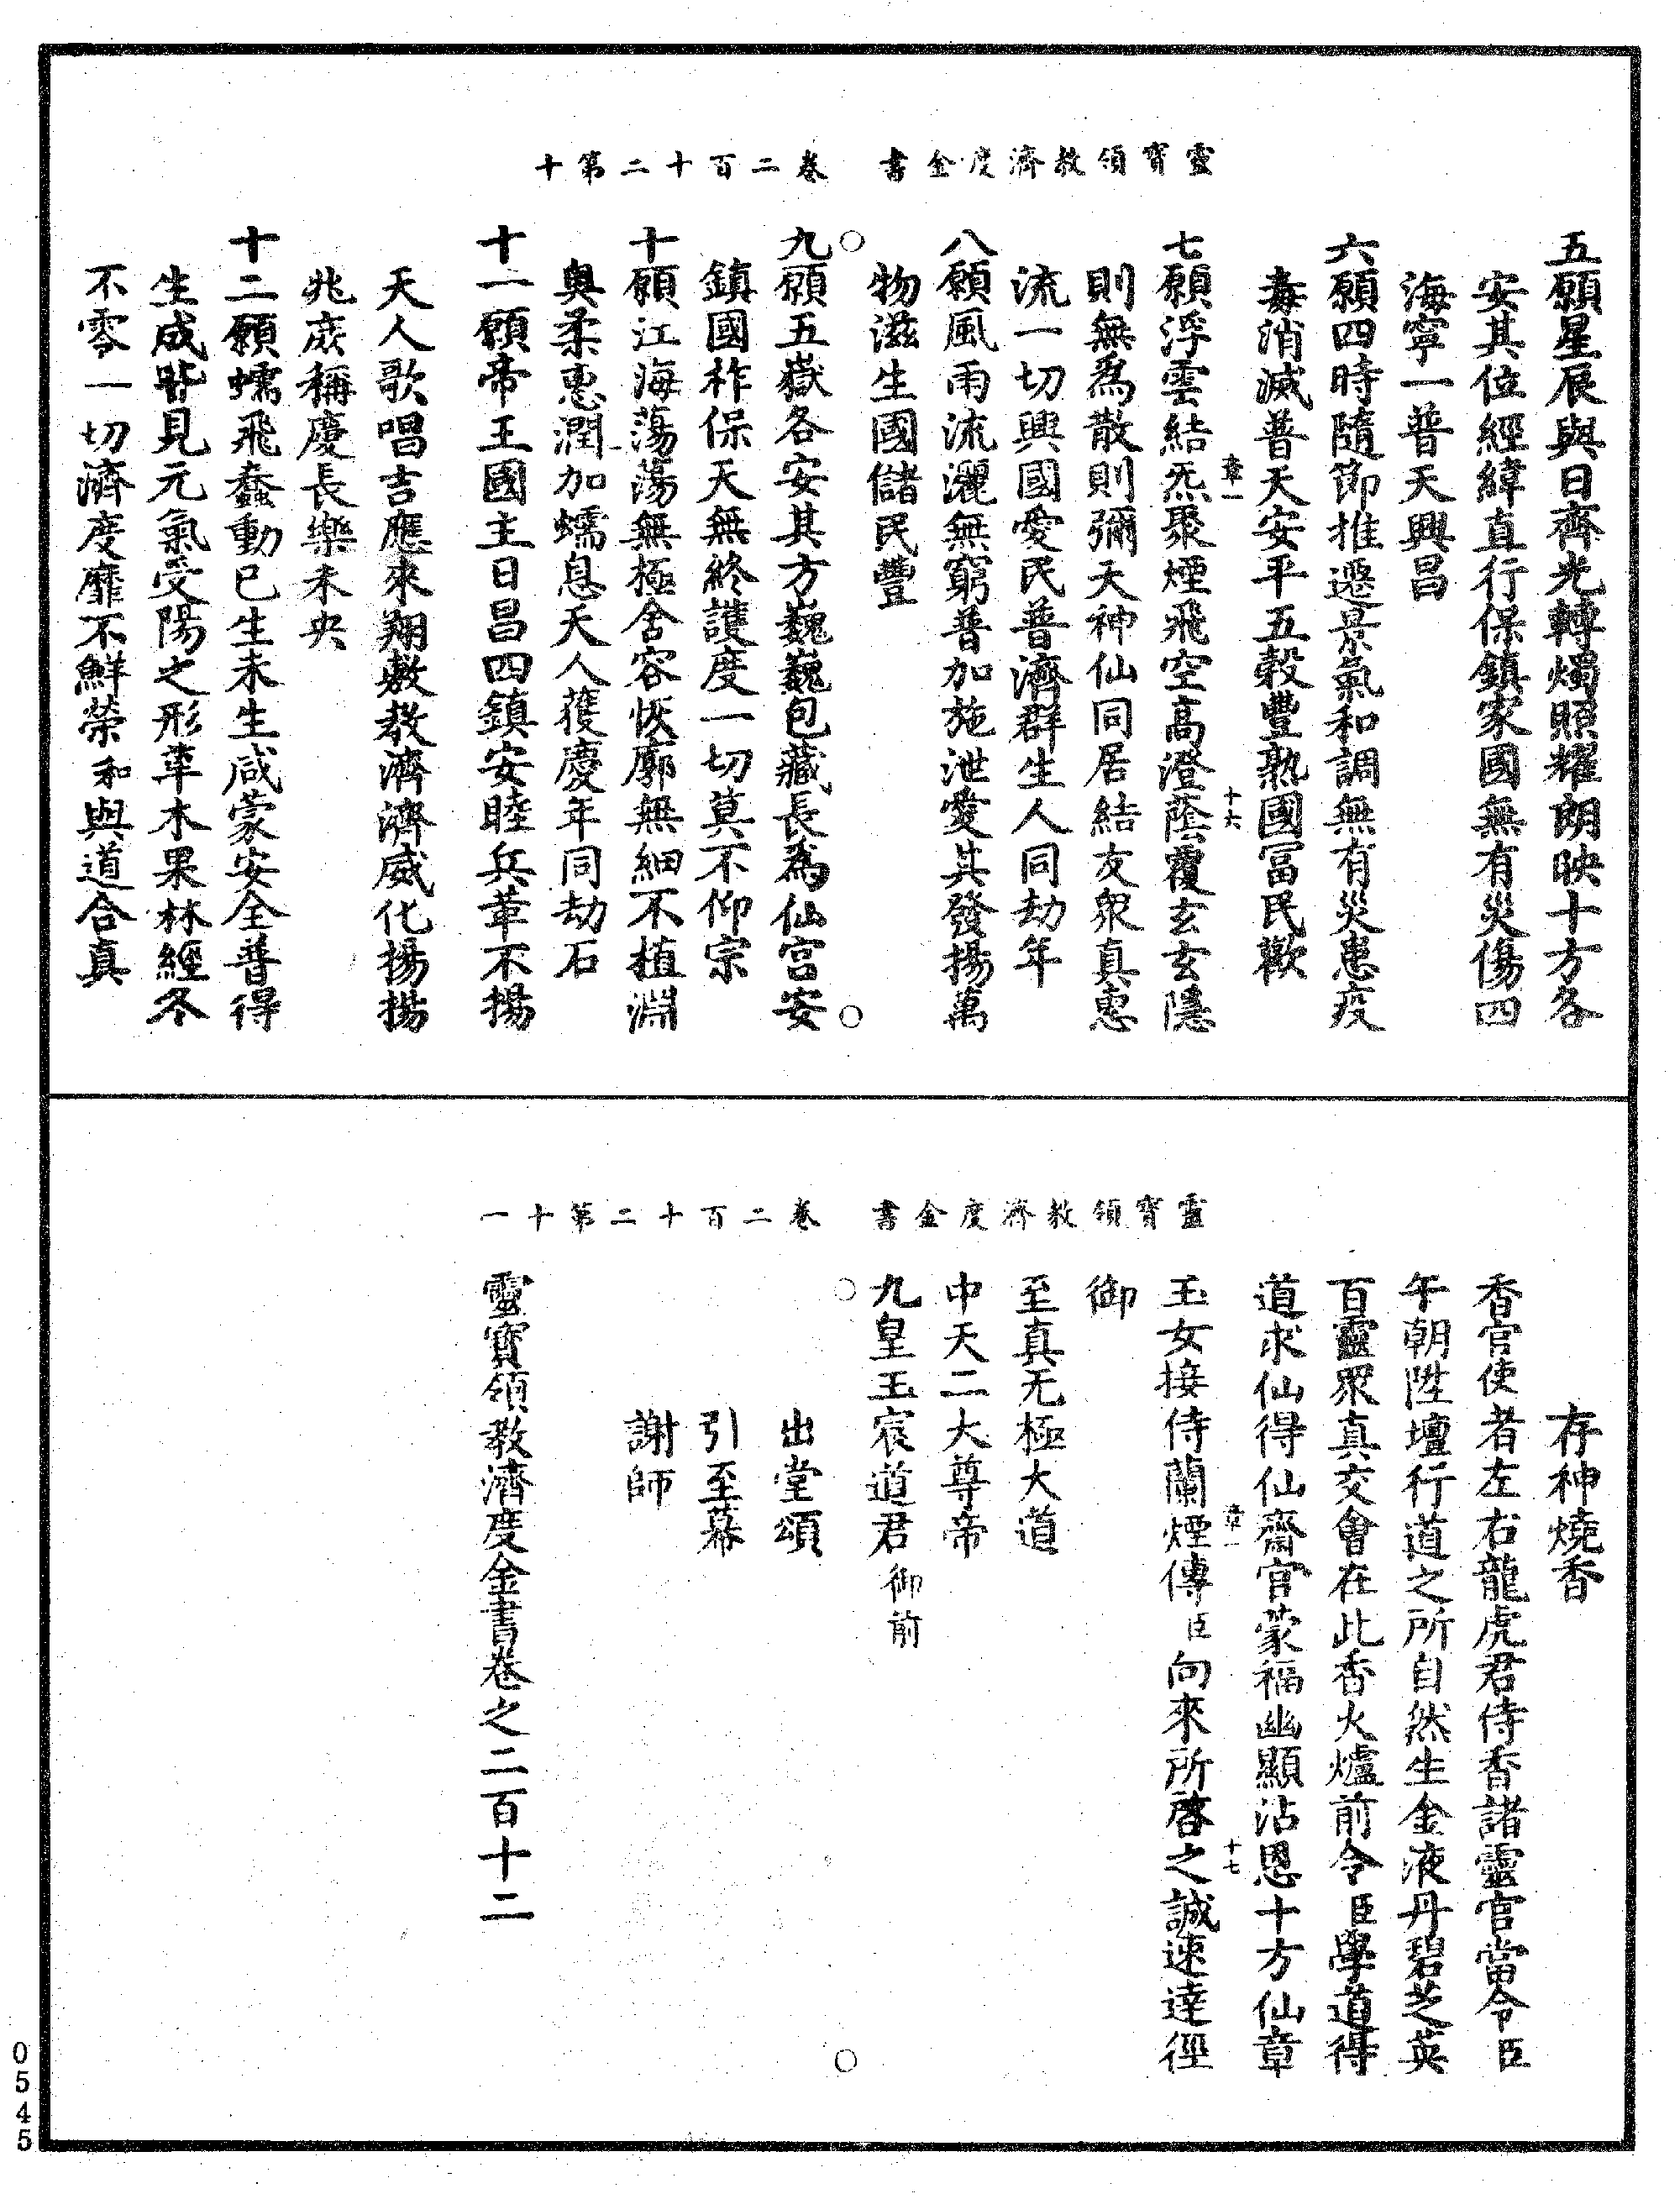 靈寶領教濟度金書　卷二百十二第十
五願星辰與日齊光轉燭照耀朗映十方各
安其位經緯直行保鎮家國無有災傷四
海寧一普天興昌
六願四時隨節推遷景氣和調無有災患疫
毒消滅普天安平五穀豐熟國富民歡
章一　十六
七願浮雲結炁聚煙飛空高澄蔭覆玄玄隱
則無為散則彌天神仙同居結友眾真惠
流一切興國愛民普濟群生人同劫年
八願風雨流灑無窮普加施泄愛其發揚萬
物滋生國儲民豐
九願五嶽各安其方巍巍包藏長為仙宮安
鎮國柞保天無終護度一切莫不仰宗
十願江海蕩蕩無極含容恢廓無細不植淵
奧柔惠潤加蠕息天人獲慶年同劫石
十一願帝王國主日昌四鎮安睦兵革不揚
天人歌唱吉應來翔敷教濟濟威化揚揚
兆庶稱慶長樂未央
十二願蠕飛蠢動已生未生咸蒙安全普得
生成皆見元氣受陽之形草木果林經冬
不零一切濟度靡不鮮榮和與道合真
靈寶領教濟度金書　卷二百十二第十一
存神燒香
香官使者左右龍虎君侍香諸靈官當令臣
午朝陞壇行道之所自然生金液丹碧芝英
百靈眾真交會在此香火爐前令臣學道得
道求仙得仙齋官蒙福幽顯沾恩十方仙章
章一　十七
玉女接侍蘭煙傳臣向來所啓之誠速達徑
御
至真无極大道
中天二大尊帝
九皇玉宸道君御前
出堂頌
引至幕
謝師
靈寶領教濟度金書卷之二百十二
0545